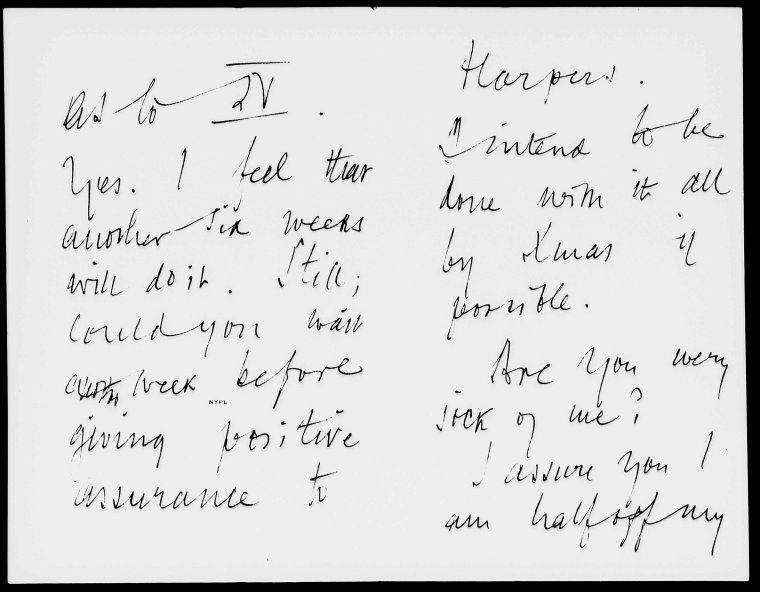 As to IV.
Yes. I feel that
another six weeks
will do it. Still;
could you wait
week before
NYPL
giving positive
assurance to
Harpers.
I intend to be
done with it all
by Xmas if
possible.
Are you very
sick of me?
I assure you I
am half off my